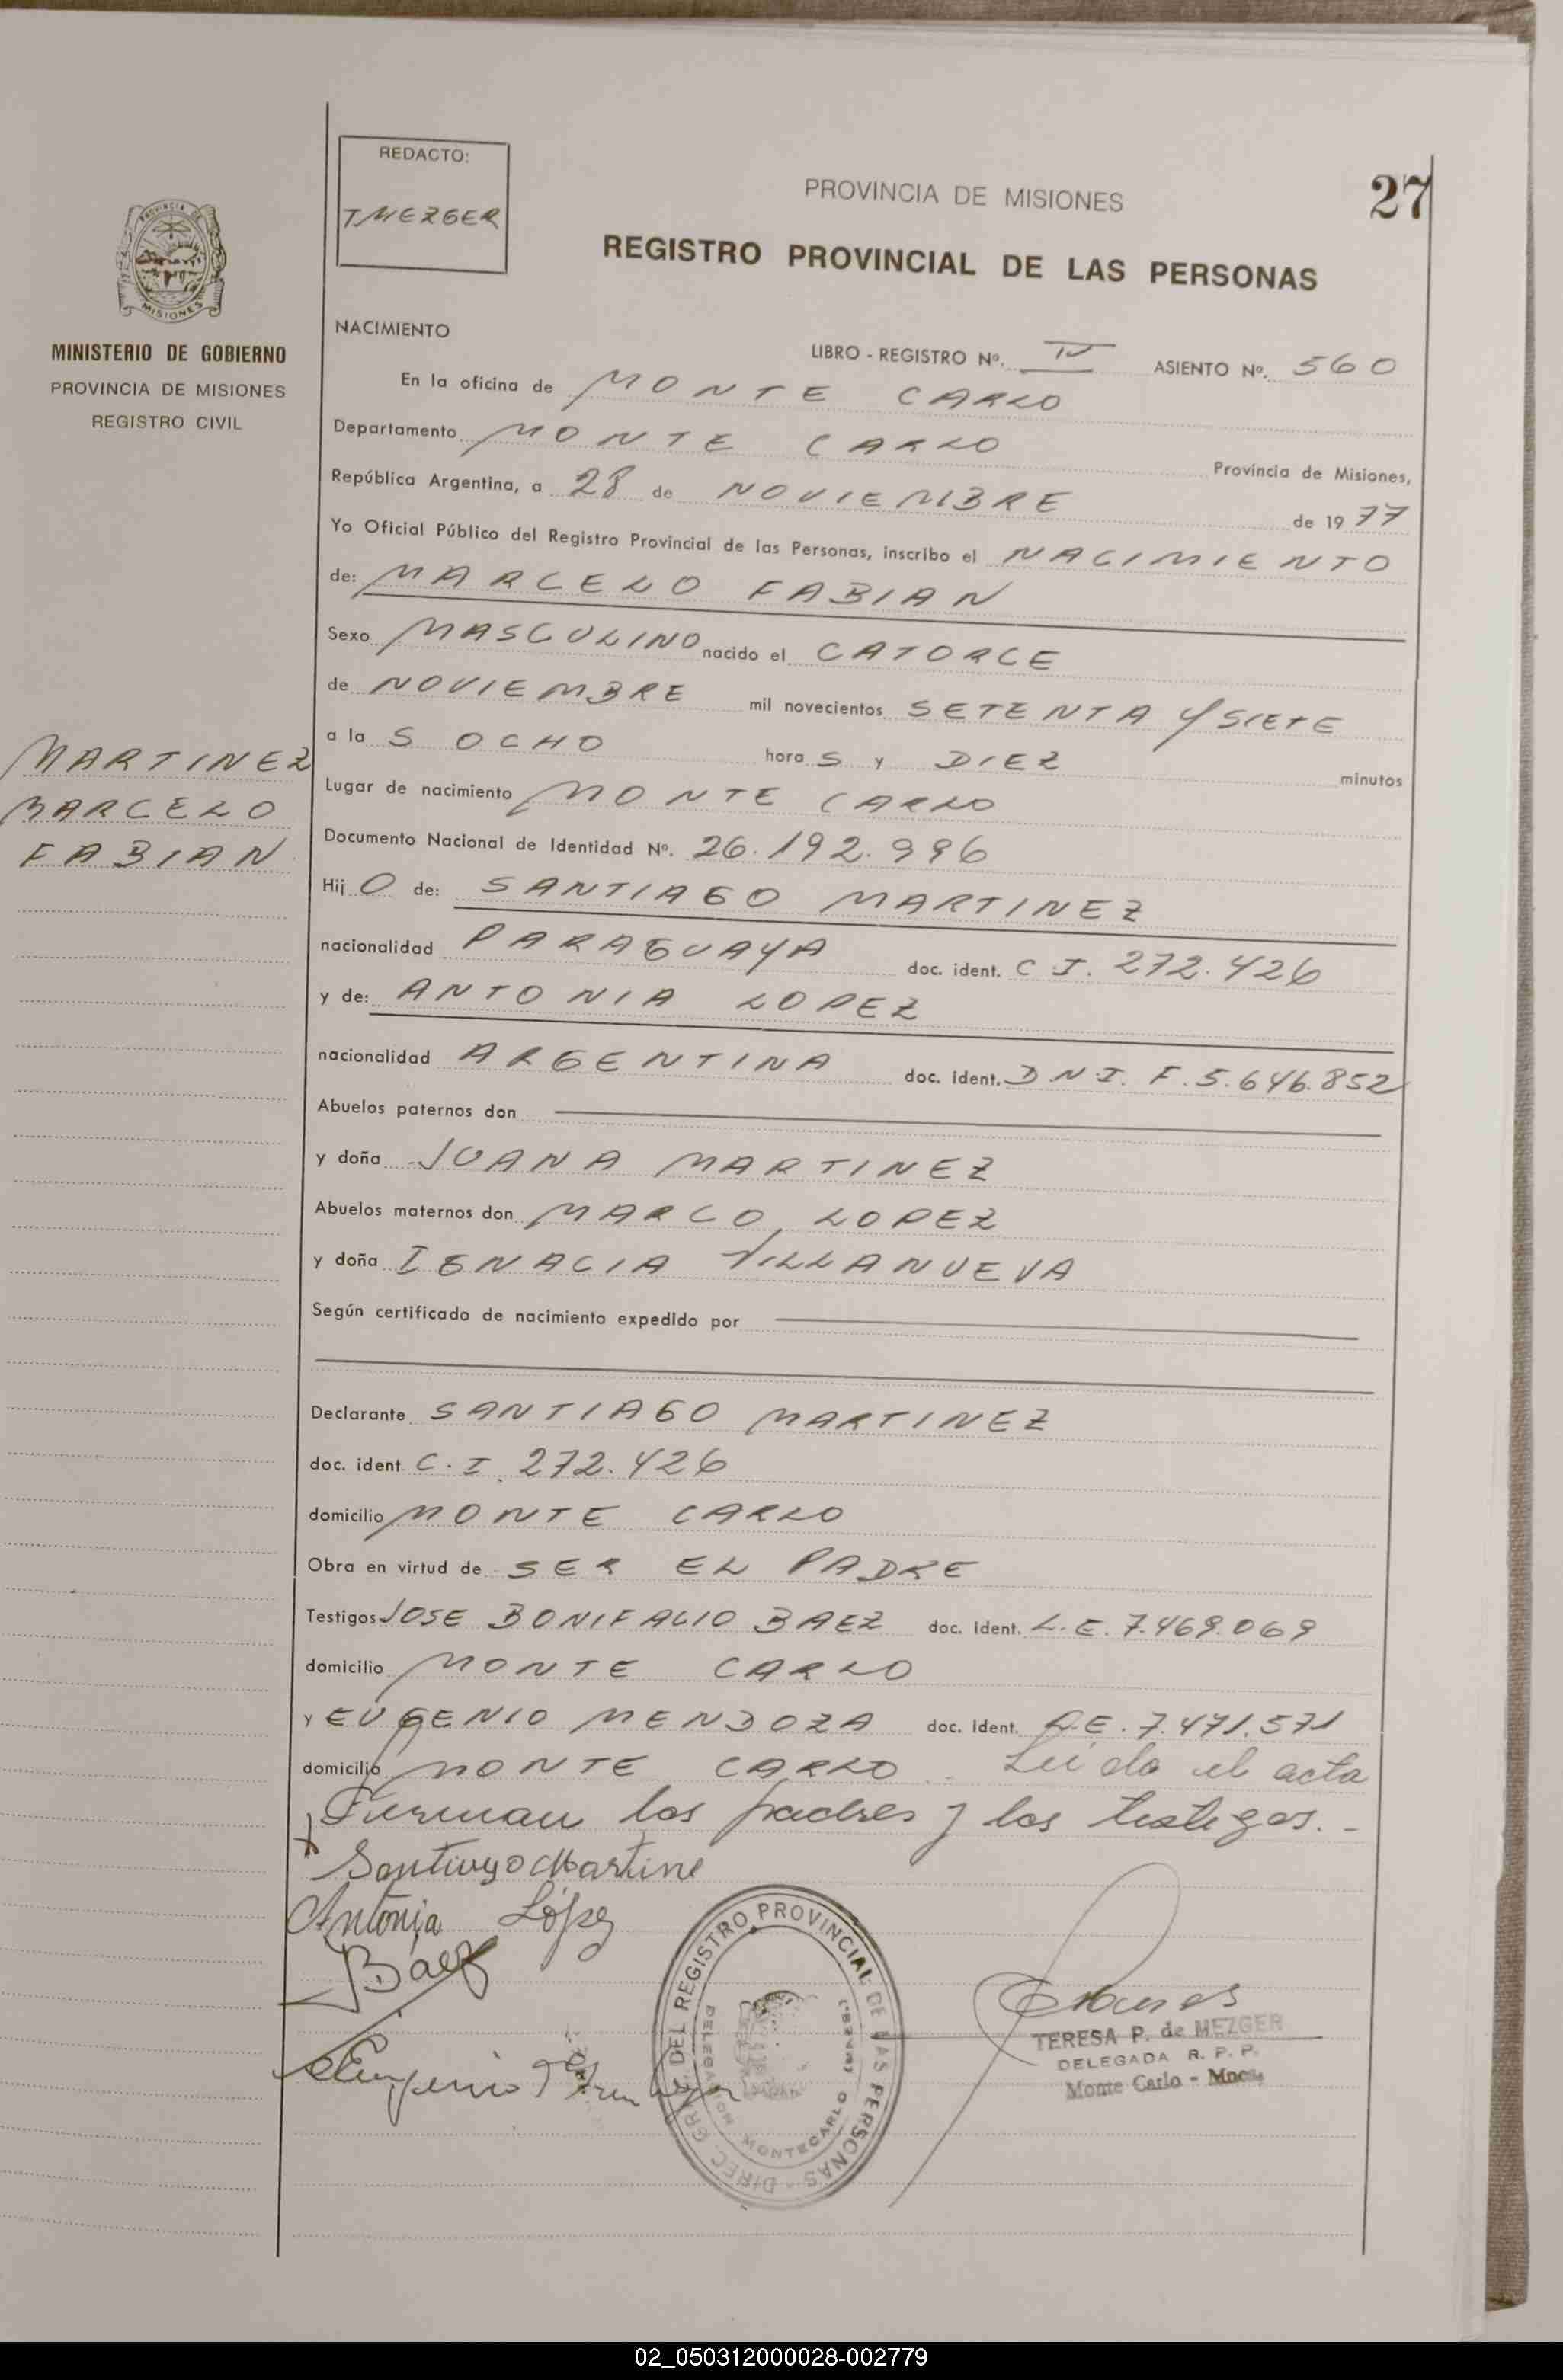 REDACTO:
T MEZGER
27
PROVINCIA DE MISIONES
REGISTRO PROVINCIAL DE LAS PERSONAS
MISIONES
MINISTERIO DE GOBIERNO
PROVINCIA DE MISIONES
REGISTRO CIVIL
MARTINEZ
MARCELO
FABIAN
NACIMIENTO
LIBRO - REGISTRO Nº. IV ASIENTO Nº. 560
En la oficina de MONTE CARLO
Departamento MONTE CARLO Provincia de Misiones,
República Argentina, a 28 de NOVIEMBRE de 1977
Yo Oficial Público del Registro Provincial de las Personas, inscribo el NACIMIENTO
de: MARCELO FABIAN
Sexo MASCULINO nacido el CATORCE
de NOVIEMBRE mil novecientos SETENTA Y SIETE
a la S OCHO hora S y DIEZ minutos
Lugar de nacimiento MONTE CARLO
Documento Nacional de Identidad Nº. 26.192.996
Hij O de: SANTIAGO MARTINEZ
nacionalidad PARAGUAYA doc. ident. C I. 272.426
y de: ANTONIA LOPEZ
nacionalidad ARGENTINA doc. ident. D N I. F. 5.646.852
Abuelos paternos don
y doña JUANA MARTINEZ
Abuelos maternos don MARCO LOPEZ
y doña IGNACIA VILLANUEVA
Según certificado de nacimiento expedido por
Declarante SANTIAGO MARTINEZ
doc. ident C. I. 272.426
domicilio MONTE CARLO
Obra en virtud de SER EL PADRE
Testigos JOSE BONIFACIO BAEZ doc. ident. L. E. 7.469.069
domicilio MONTE CARLO
y EUGENIO MENDOZA doc. ident. L.E. 7.471.571
domicilio MONTE CARLO. Leída el acta
Firman los padres y los testigos.-
Santiago Martine
Antonia López
JBáez
Eugenio
DIREC. GRAL DEL REGISTRO PROVINCIAL DE LAS PERSONAS
DELEGACION MONTECARLO
TERESA P. de MEZGER
DELEGADA R. P. P.
Monte Carlo - Mnes.
02_050312000028-002779